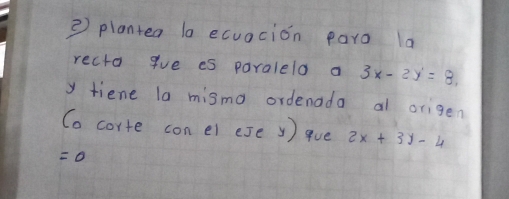 2) plantea la ecuación para la
recta que es paralela a 3x - 2y = 8,
y tiene la misma ordenada al origen
(o corte con el eje y) que 2x + 3y - 4
= 0